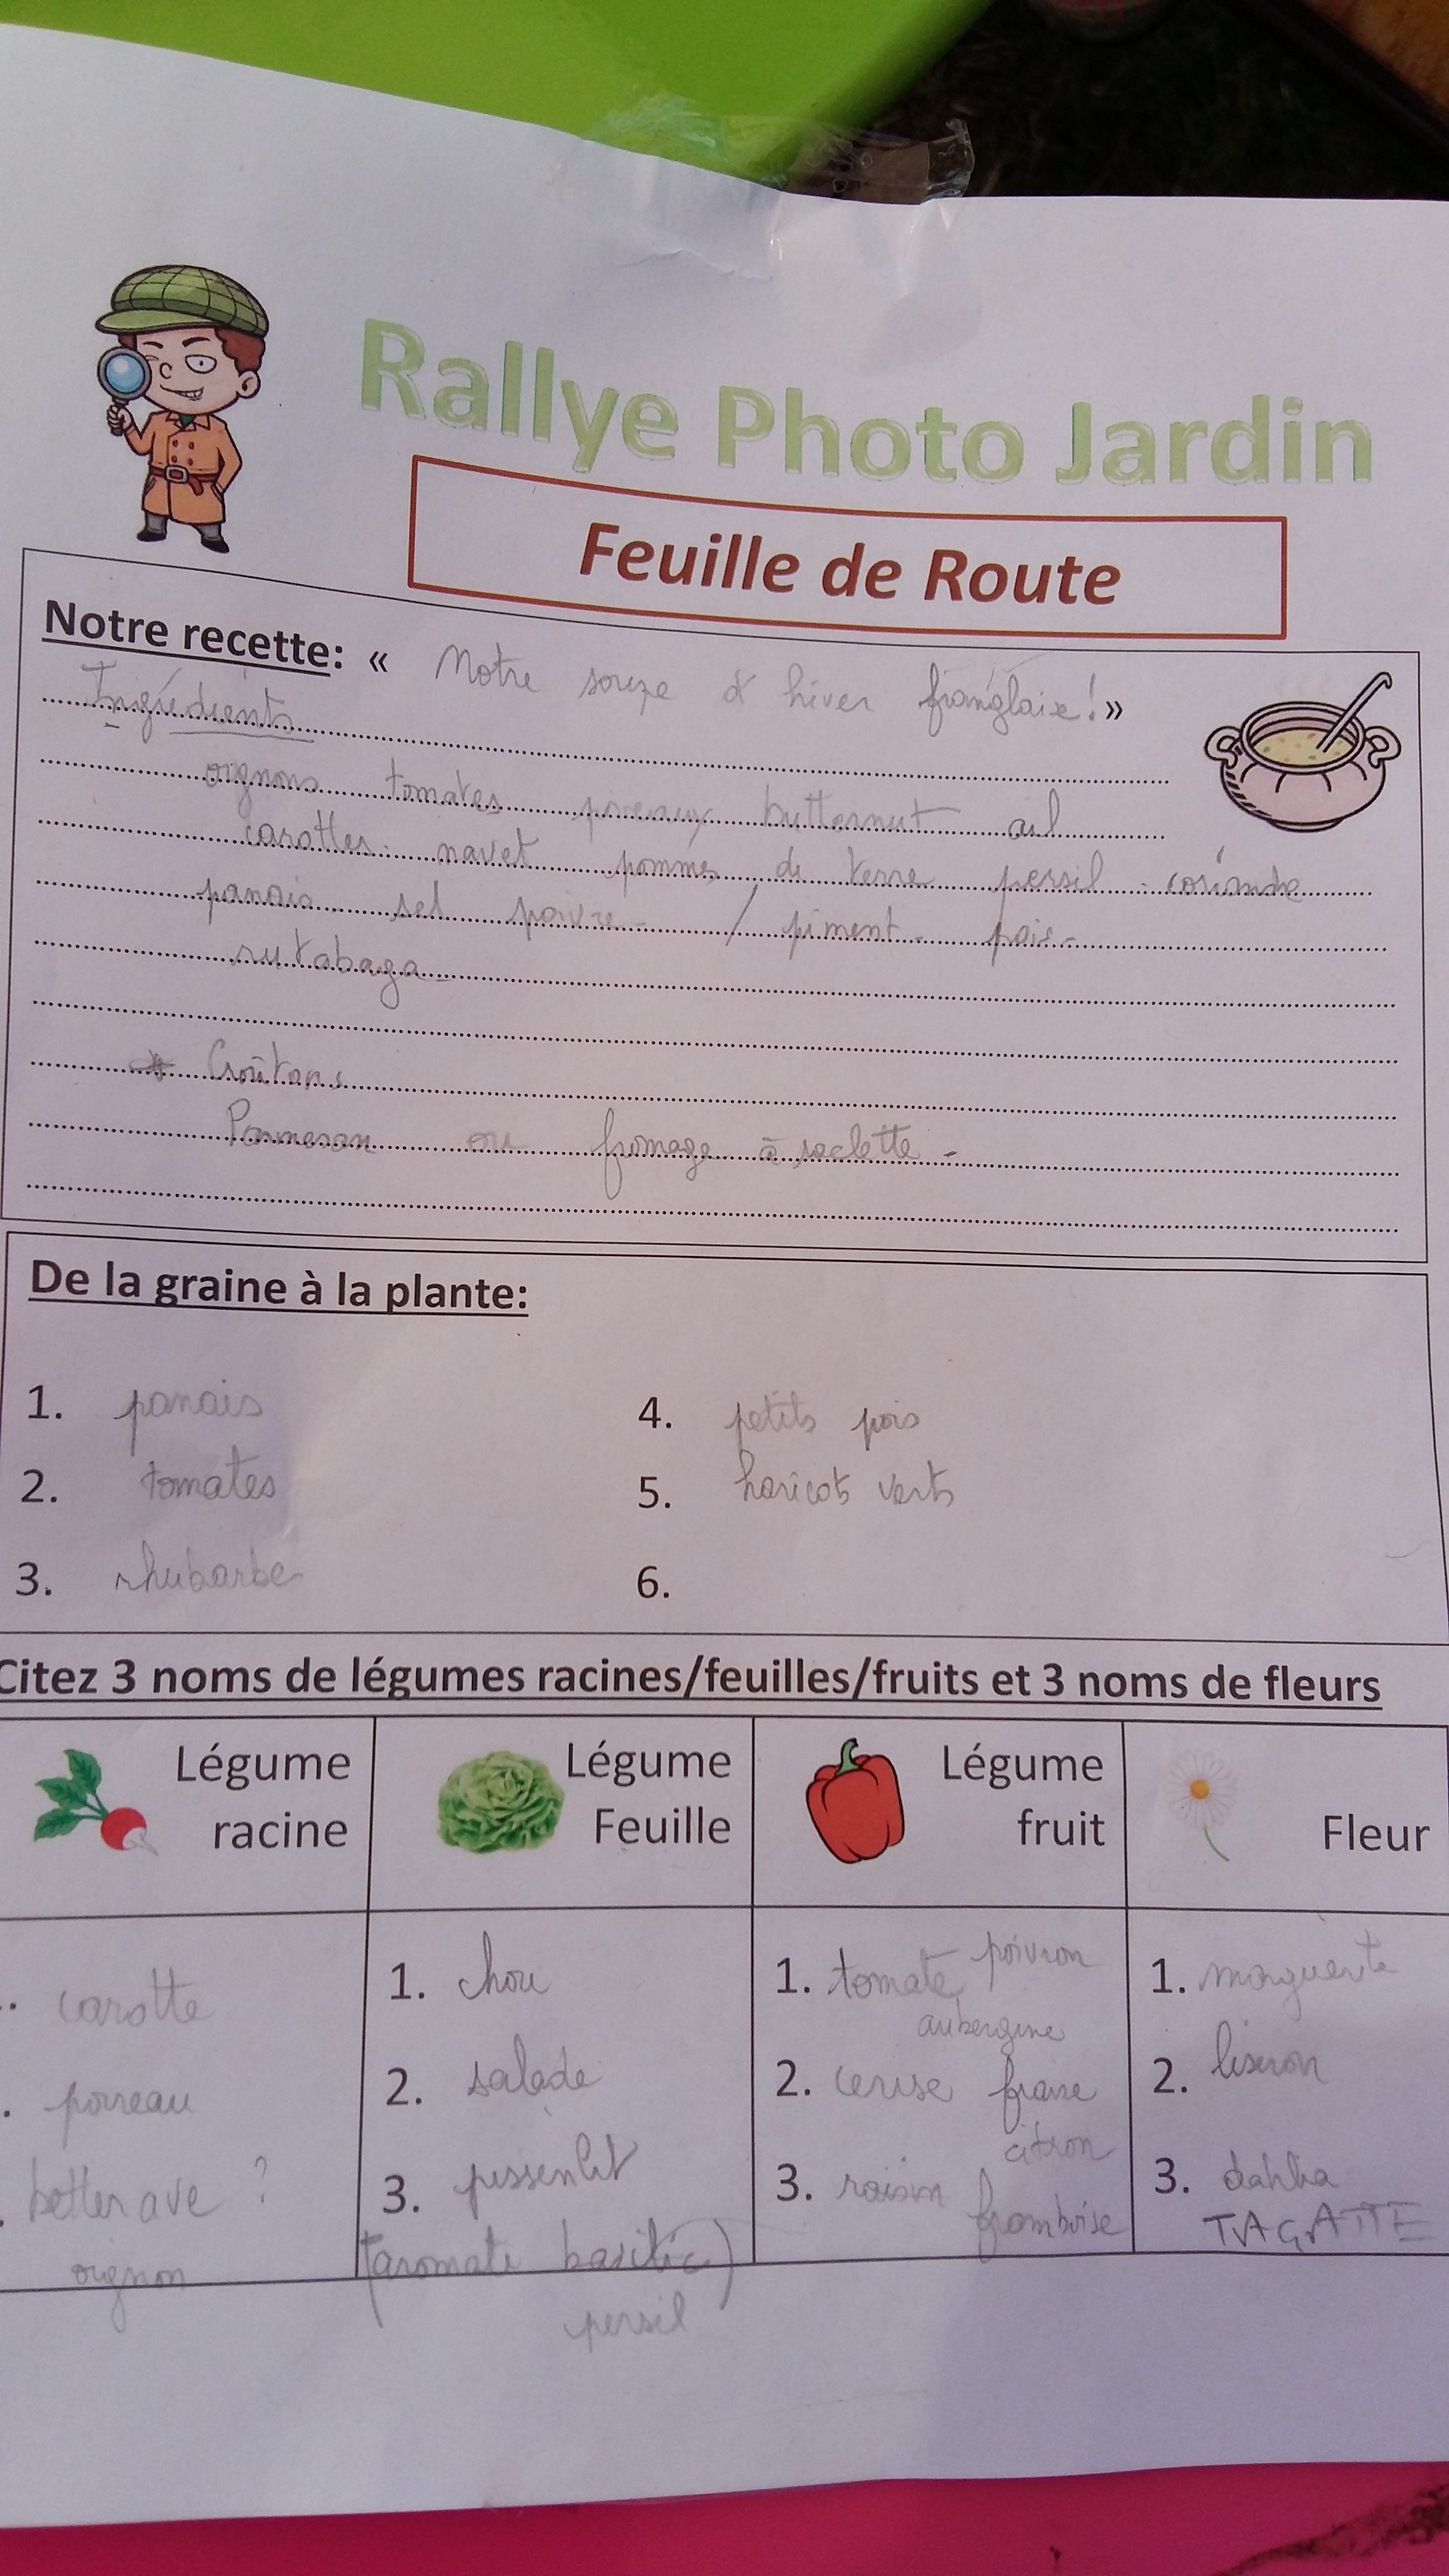 Rallye Photo Jardin
Feuille de Route
Notre recette: « Notre soupe d'hiver franglaise! »
Ingrédients
oignons tomates poireaux butternut ail
carottes. navet pommes de terre persil - coriandre
panais sel poivre - / piment - pois -
rutabaga -
Croûtons
Parmesan ou fromage à raclette -
De la graine à la plante:
1. panais
2. tomates
3. rhubarbe
4. petits pois
5. haricots verts
6.
Citez 3 noms de légumes racines/feuilles/fruits et 3 noms de fleurs
Légume racine
carotte
poireau
betterave ?
oignon
Légume Feuille
1. chou
2. salade
3. pissenlit
(aromate basilic)
persil
Légume fruit
1. tomate poivron
aubergine
2. cerise fraise
citron
3. raisin framboise
Fleur
1. marguerite
2. liseron
3. dahlia
TAGATTE